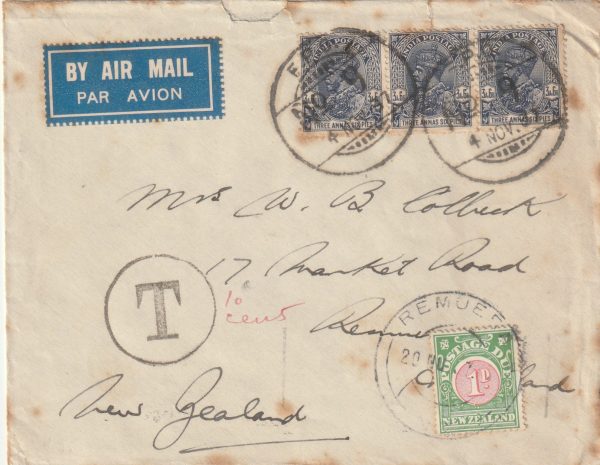 BY AIR MAIL
PAR AVION
INDIA POSTAGE
INDIA POSTAGE
INDIA POSTAGE
THREE ANNAS SIX PIES
THREE ANNAS SIX PIES
THREE ANNAS SIX PIES
4 NOV.
4 NOV.
Mrs W. B. Colbeck
17 Market Road
T
10
cent
REMUE
20 NO
POSTAGE DUE
1D
NEW ZEALAND
New Zealand